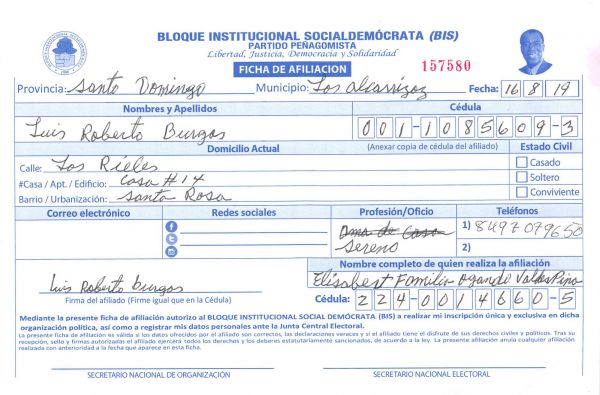 BLOQUE INSTITUCIONAL SOCIALDEMÓCRATA (BIS)
PARTIDO PEÑAGOMISTA
Libertad, Justicia, Democracia y Solidaridad
FICHA DE AFILIACION
157580
Provincia: Santo Domingo Municipio: Los alcarrizoz Fecha: 16 / 8 / 19
Nombres y Apellidos Cédula
Luis Roberto Burgos 001-1085609-3
Domicilio Actual (Anexar copia de cédula del afiliado) Estado Civil
Calle: Los Rieles Casado
#Casa / Apt. / Edificio: Casa #14 Soltero
Barrio / Urbanización: Santa Rosa Conviviente
Correo electrónico Redes sociales Profesión/Oficio Teléfonos
Ama de Casa 1) 8497079650
Sereno 2)
Nombre completo de quien realiza la afiliación
Luis Roberto burgos Elisabert Familia Ogando
Firma del afiliado (Firme igual que en la Cédula) Cédula: 224-0014660-5
Mediante la presente ficha de afiliación autorizo al BLOQUE INSTITUCIONAL SOCIAL DEMÓCRATA (BIS) a realizar mi inscripción única y exclusiva en dicha
organización política, así como a registrar mis datos personales ante la Junta Central Electoral.
La presente ficha de afiliación es válida si los datos ofrecidos por el afiliado son correctos, las declaraciones veraces y si el afiliado tiene el disfrute de sus derechos civiles y políticos. Tras su
recepción, sello y firmas autorizadas el afiliado ejercerá todos los derechos y los deberes estatutariamente sancionados, de acuerdo a la ley. La presente afiliación anula cualquier afiliación
realizada con anterioridad a la fecha que aparece en esta ficha.
SECRETARIO NACIONAL DE ORGANIZACIÓN SECRETARIO NACIONAL ELECTORAL